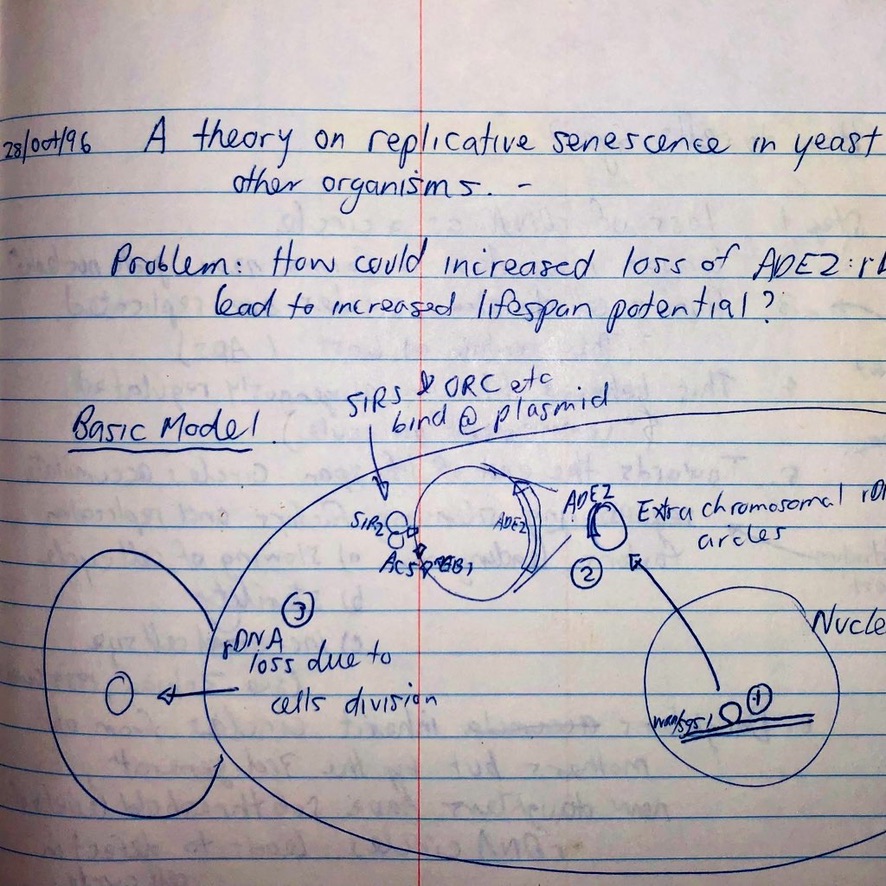 28/Oct/96 A theory on replicative senescence in yeast
other organisms. -
Problem: How could increased loss of ADE2:rD
lead to increased lifespan potential?
SIRS & ORC etc
bind @ plasmid
Basic Model.
SIR2
ACS
ADE2
ADE2
Extra chromosomal rD
circles
②
Nucle
③
rDNA
loss due to
cells division
①